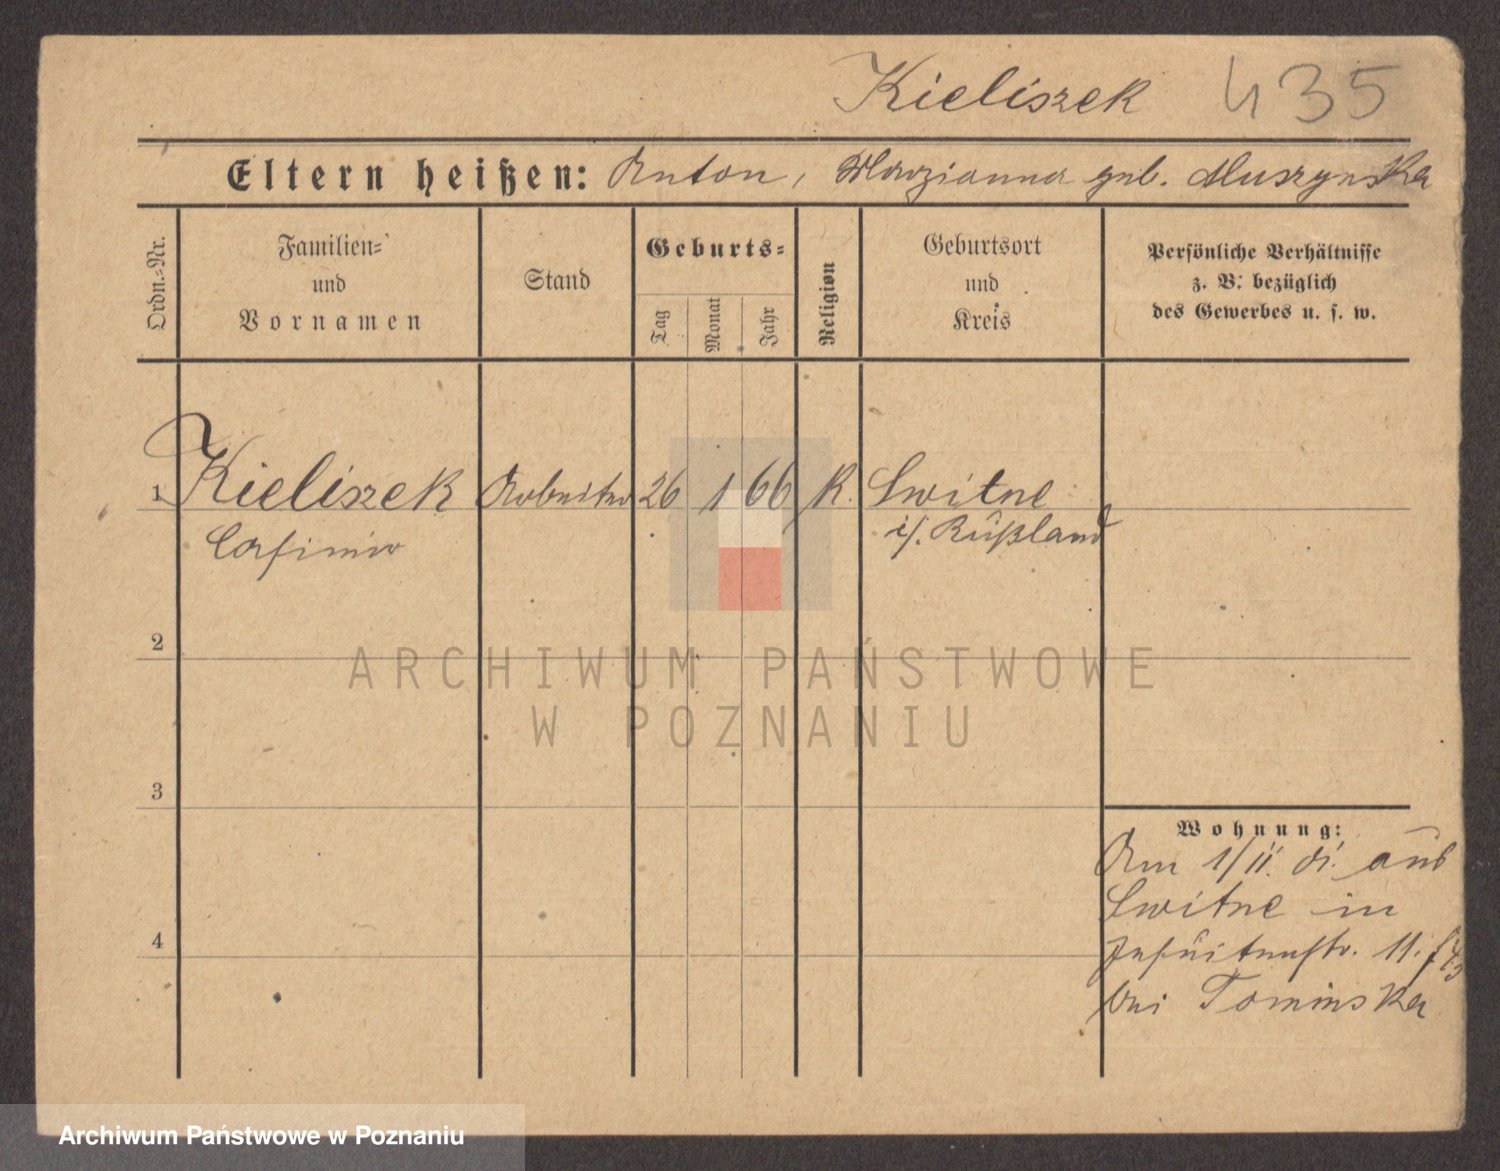 Kieliszek 435
Eltern heißen: Anton, Marzianna geb. Muszynska
Ordn.-Nr.
Familien-
und
Vornamen
Stand
Geburts-
Tag
Monat
Jahr
Religion
Geburtsort
und
Kreis
Persönliche Verhältnisse
z. B. bezüglich
des Gewerbes u. s. w.
1 Kieliszek Arbeiter 26 1 66 K. Switne
Casimir i/. Rußland
2
ARCHIWUM PAŃSTWOWE
W POZNANIU
3
Wohnung:
Am 1/II. aus
Switne in
Jesuitenstr. 11.
bei Tominska
4
Archiwum Państwowe w Poznaniu